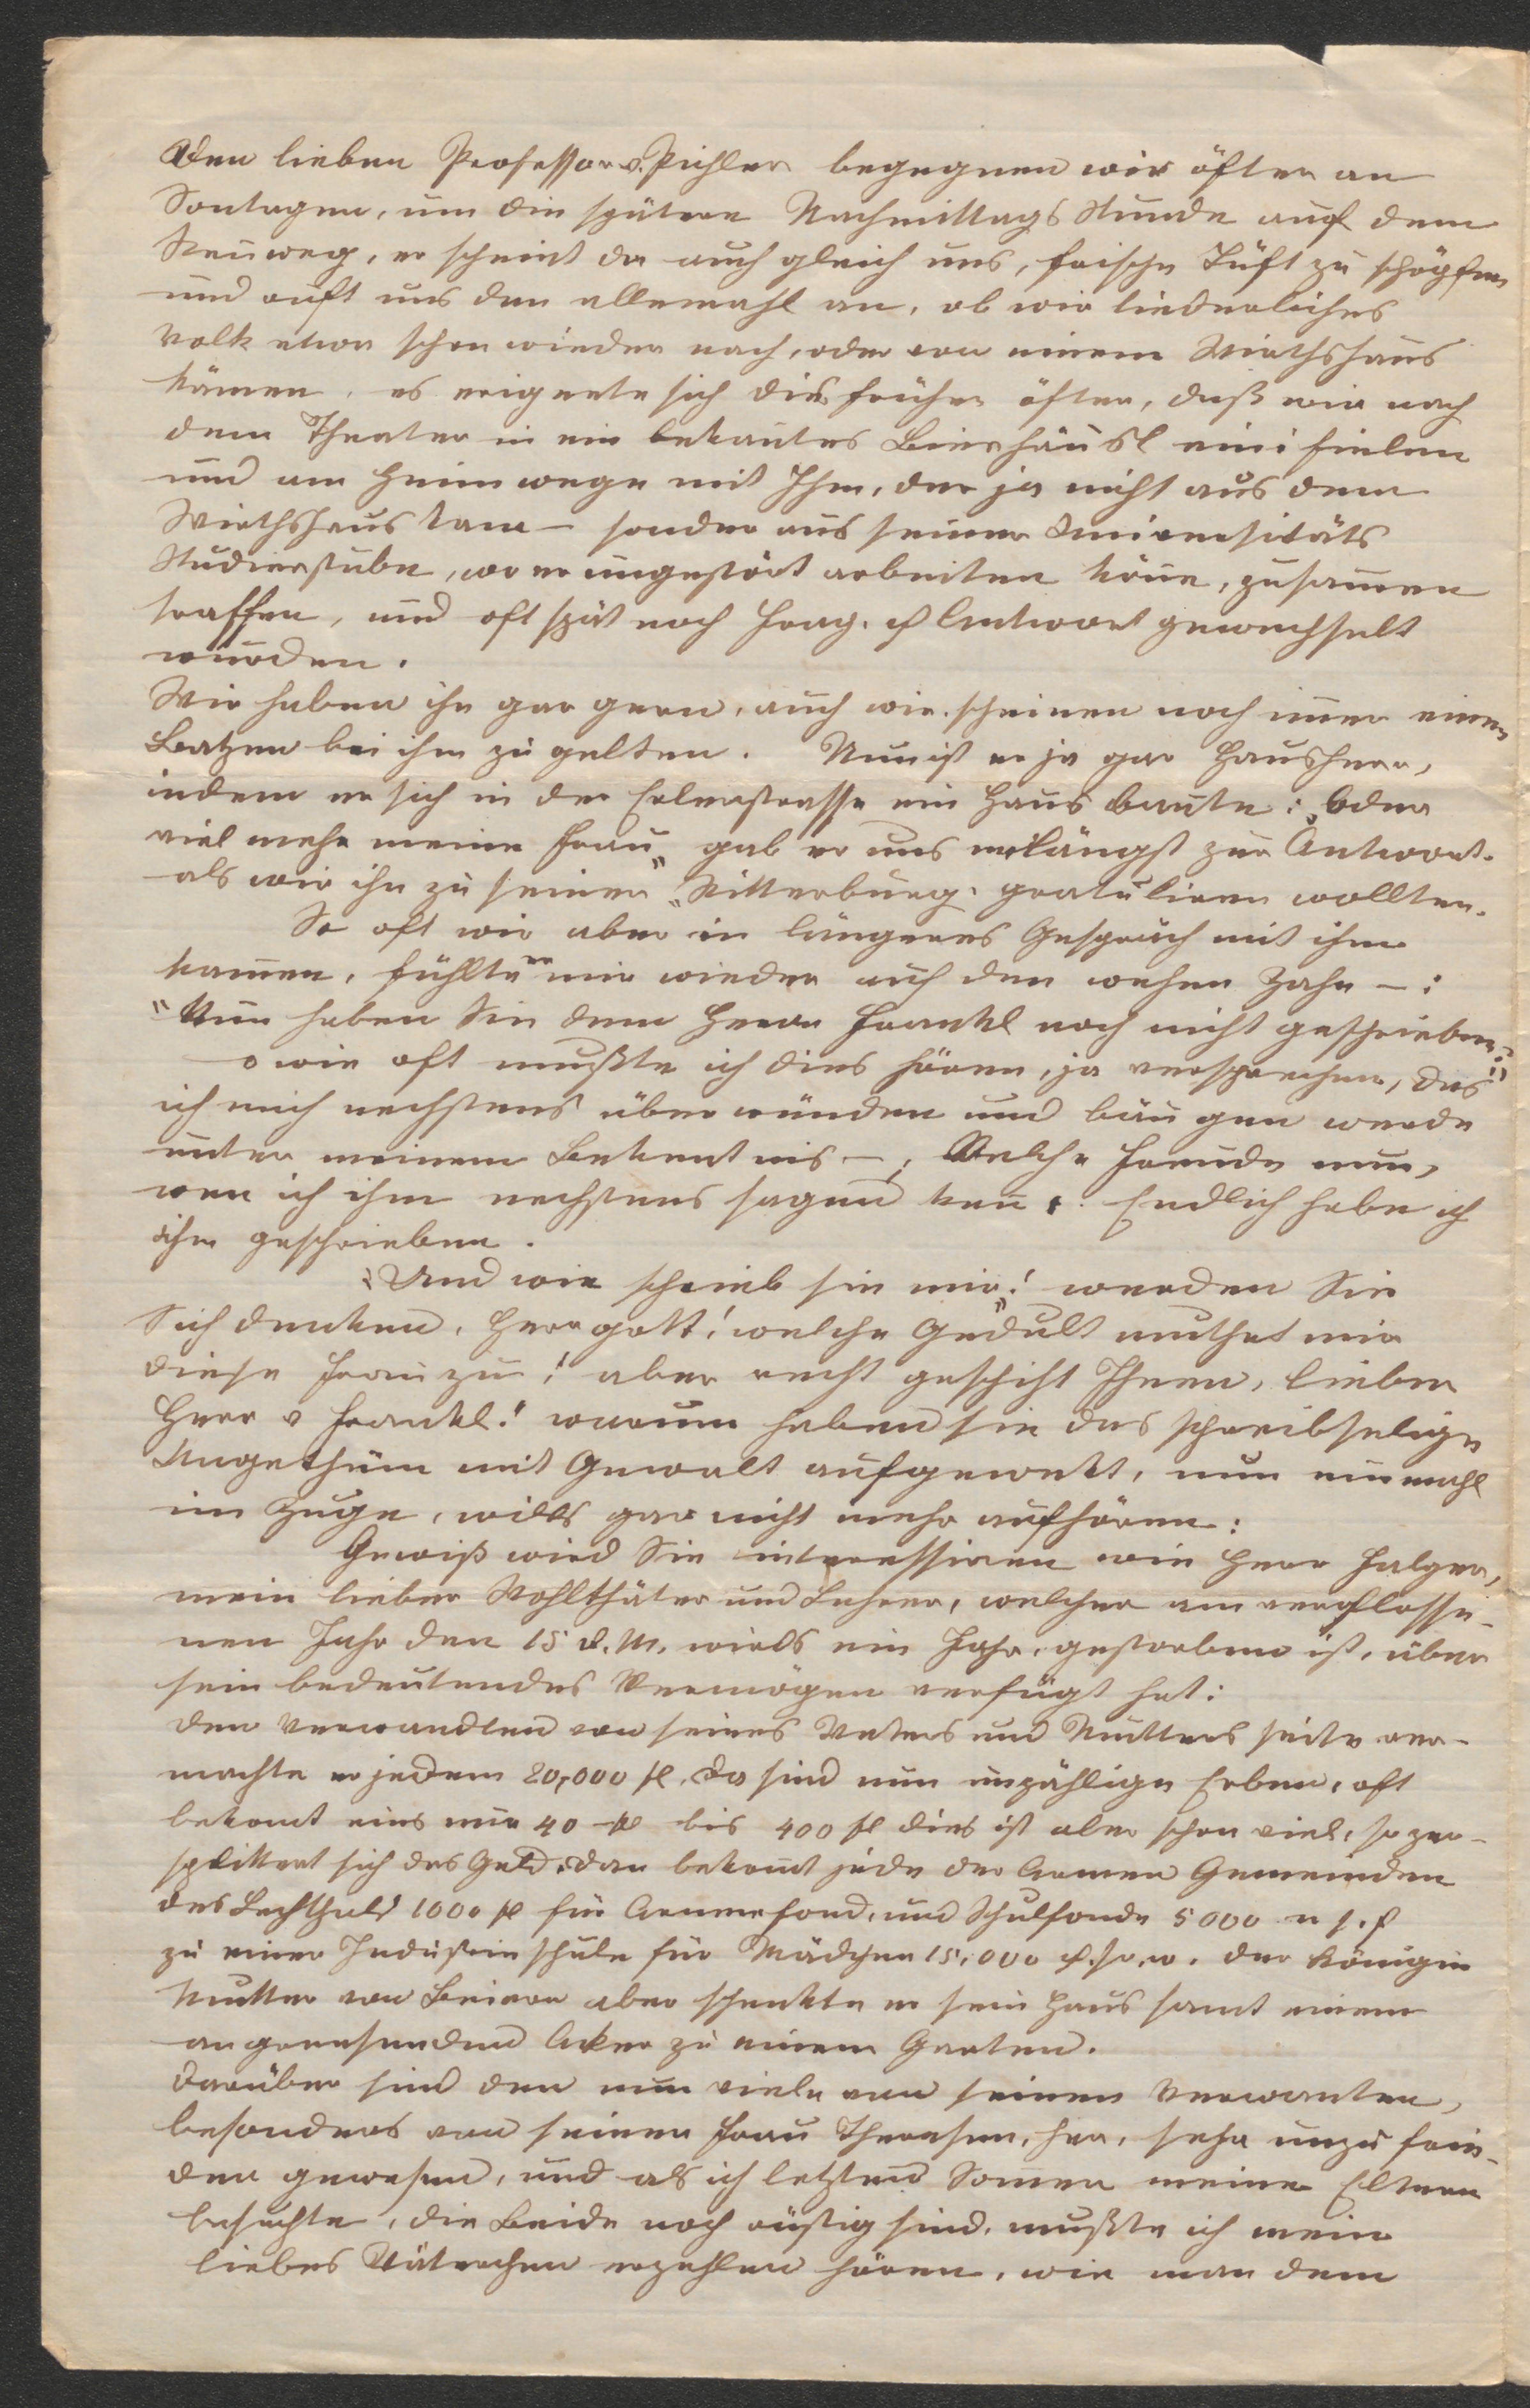 Den lieben Professor v. Pichler begegnen wir öfter an
Sontagen, um die spätere Nachmittags Stunde auf dem
Rennweg, er scheint da auch gleich uns, frische Luft zu schöpfen
und ruft uns den allemahl an, ob wir liederliches
Volk etwa schon wieder nach, oder von einem Wirthshaus
kämen, es ereignete sich dies früher öfter, daß wir nach
dem Theater in ein bekantes Bierhäusl eini fielen
und am Heimwege mit Ihm, der ja nicht aus dem
Wirthshaus kam – sonder aus seiner Universitäts
Studierstube, wo er ungestört arbeiten köne, zusamen
traffen, und oft spät noch Frag. & Antwort gewechselt
wurden.
Wir haben ihn gar gern, auch wir scheinen noch imer einen
Batzen bei ihm zu gelten. Nun ist er ja gar Hausherr,
indem er sich in der Erlerstrasse ein Haus baute: „Oder
viel mehr meine Frau" gab er uns unlängst zur Antwort.
als wir ihn zu seiner „Ritterburg" gratuliren wollten.
So oft wir aber in längeres Gespräch mit ihm
kamen, fühlte er mir wieder auf den wehen Zahn –:
"Nun haben Sie dem Herrn Frankl noch nicht geschrieben?"
o wie oft mußte ich dies hören, ja versprechen, das
ich mich nechstens überwünden und bäugen werde
unter meinem Bekentnis –, Welche Freude nun,
wen ich ihm nechstens sagen kan: Endlich habe ich
ihm geschrieben.
„Und wie schrieb sie mir"! werden Sie
Sich denken, Herr gott! welche Gedult muthet mir
diese Frau zu! aber recht geschiht Ihnen, lieber
Herr v Frankl! warum haben sie das schreibselige
Ungethüm mit Gewalt aufgewekt, nun einmahl
im Zuge, wills gar nicht mehr aufhören:
Gewiß wird Sie interessiren wie Herr Falger,
mein lieber Wohlthäter und Lehrer, welcher am verflosse-
nen Jahr den 15 d. M. wirds ein Jahr, gestorben ist, über
sein bedeutendes Vermögen verfügt hat:
den Verwandten von seines Vaters und Mutters seite ver-
machte er jedem 20,000 fl. da sind nun unzählige Erben, oft
bekomt eins nur 40 fl bis 400 fl dies ist aber schon viel, so zer-
splittert sich das Geld, dan bekomt jede der Armen Gemeinden
des Lechthals 1000 fl für Armenfond, und Schulfonde 5000 u s. f
zu einer Industrieschule für Mädchen 15,000 der Königin
Mutter von Beiern aber schenkte er sein Haus samt einem
angrensenden Aker zu einem Garten.
Darüber sind den nun viele von seinen Verwanten,
besonders von seiner Frau Theresen, her, sehr unzu frie-
den gewesen, und als ich letzten Somer meine Eltern
besuchte, die Beide noch rüstig sind, mußte ich mein
liebes Väterchen erzehlen hören, wie man dem